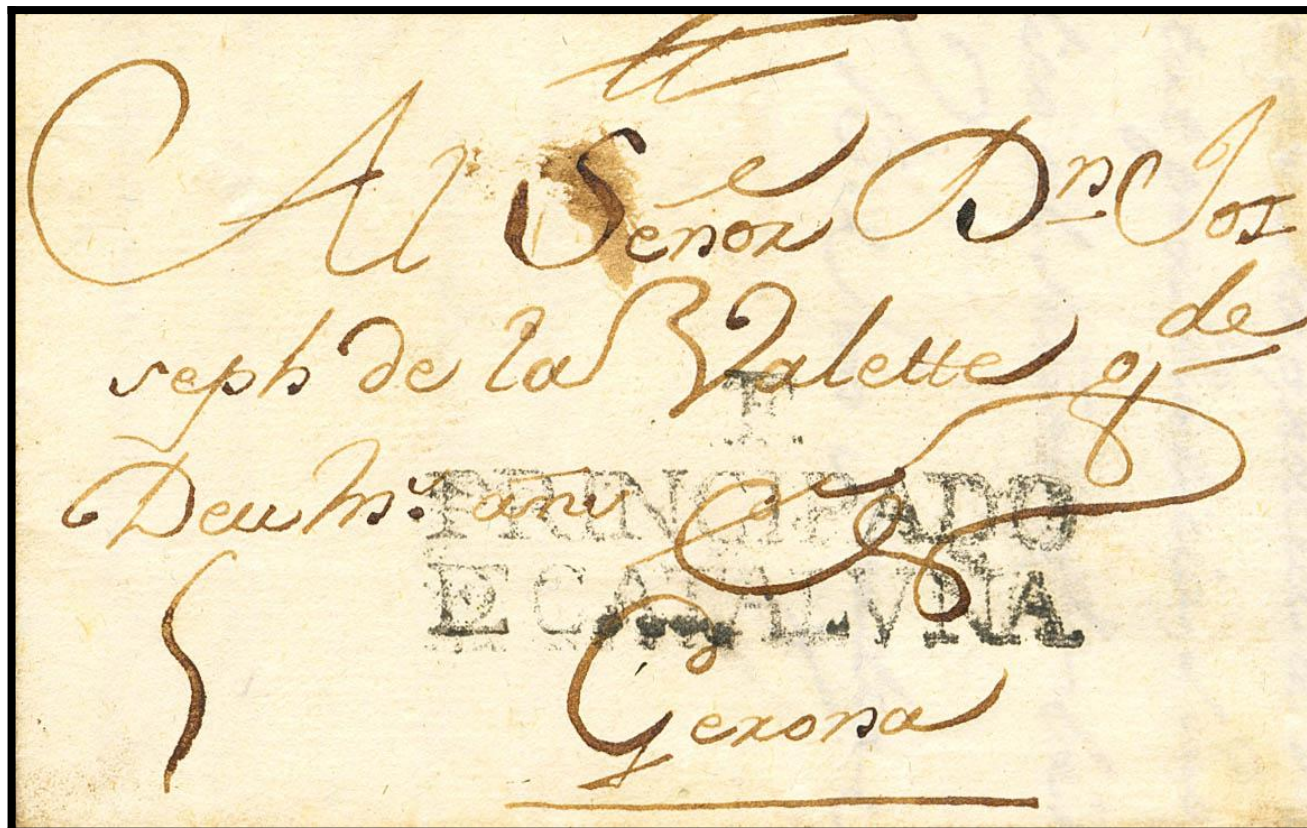 Al Señor Dn Jo
seph de la Valette gde
Deu ms. ans
F.
PRINCIPADO
E CATALVNA
Gerona